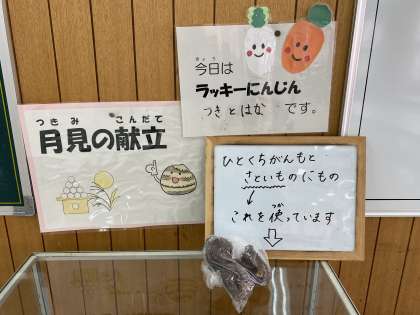 きょう
今日は
ラッキーにんじん
つきとはな です。
つきみ こんだて
月見の献立
ひとくちがんもと
さといものにもの
つか
これを使っています